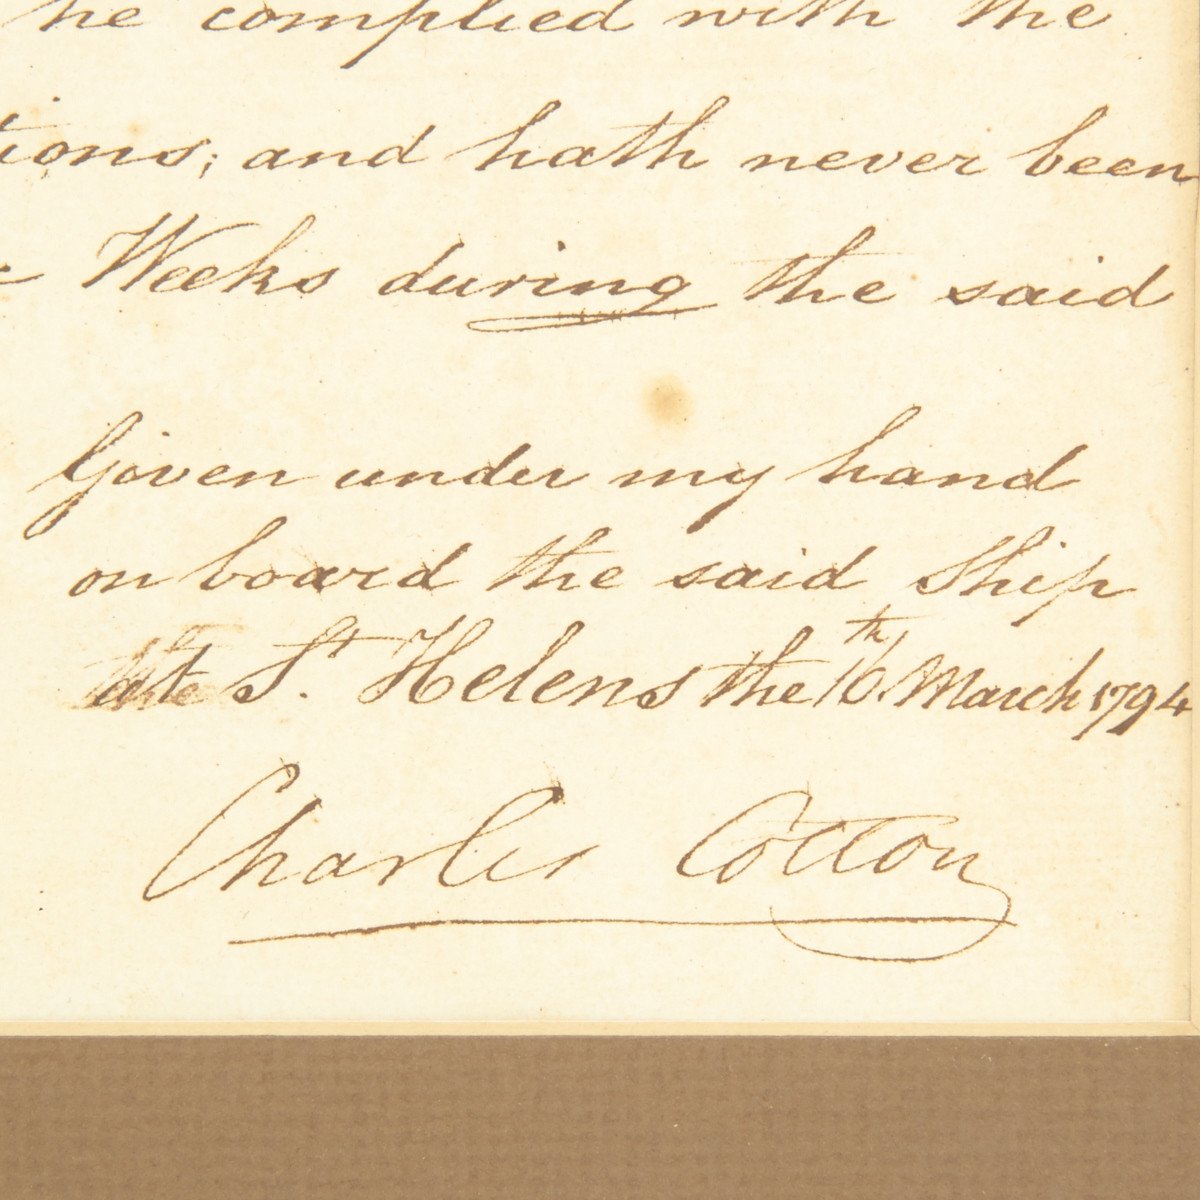 he complied with the
tions; and hath never been
Weeks during the said
Given under my hand
on board the said Ship
at St. Helens the 16th March 1794
Charles Cotton